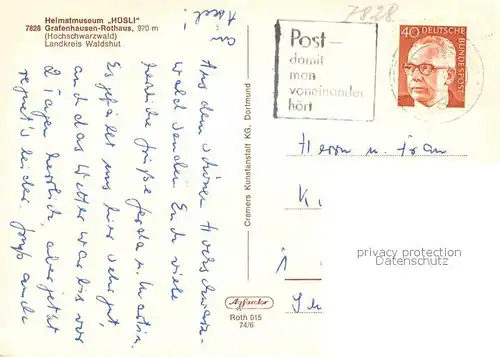 Heimatmuseum „HÜSLI"
7828 Grafenhausen-Rothaus, 970 m
(Hochschwarzwald)
Landkreis Waldshut
Aus dem schönen Hochschwarz-
wald senden Euch viele
herzliche Grüße Gerda u. Martin.
Es gefällt uns hier sehr gut,
auch das Wetter war bis vor
2 Tagen herrlich, aber jetzt
regnet's leider. Gruß auch
Cramers Kunstanstalt KG, Dortmund
Roth 015
74/6
7828
Post-
damit
man
voneinander
hört
40
DEUTSCHE
BUNDESPOST
Herrn u. Frau
K
privacy protection
Datenschutz